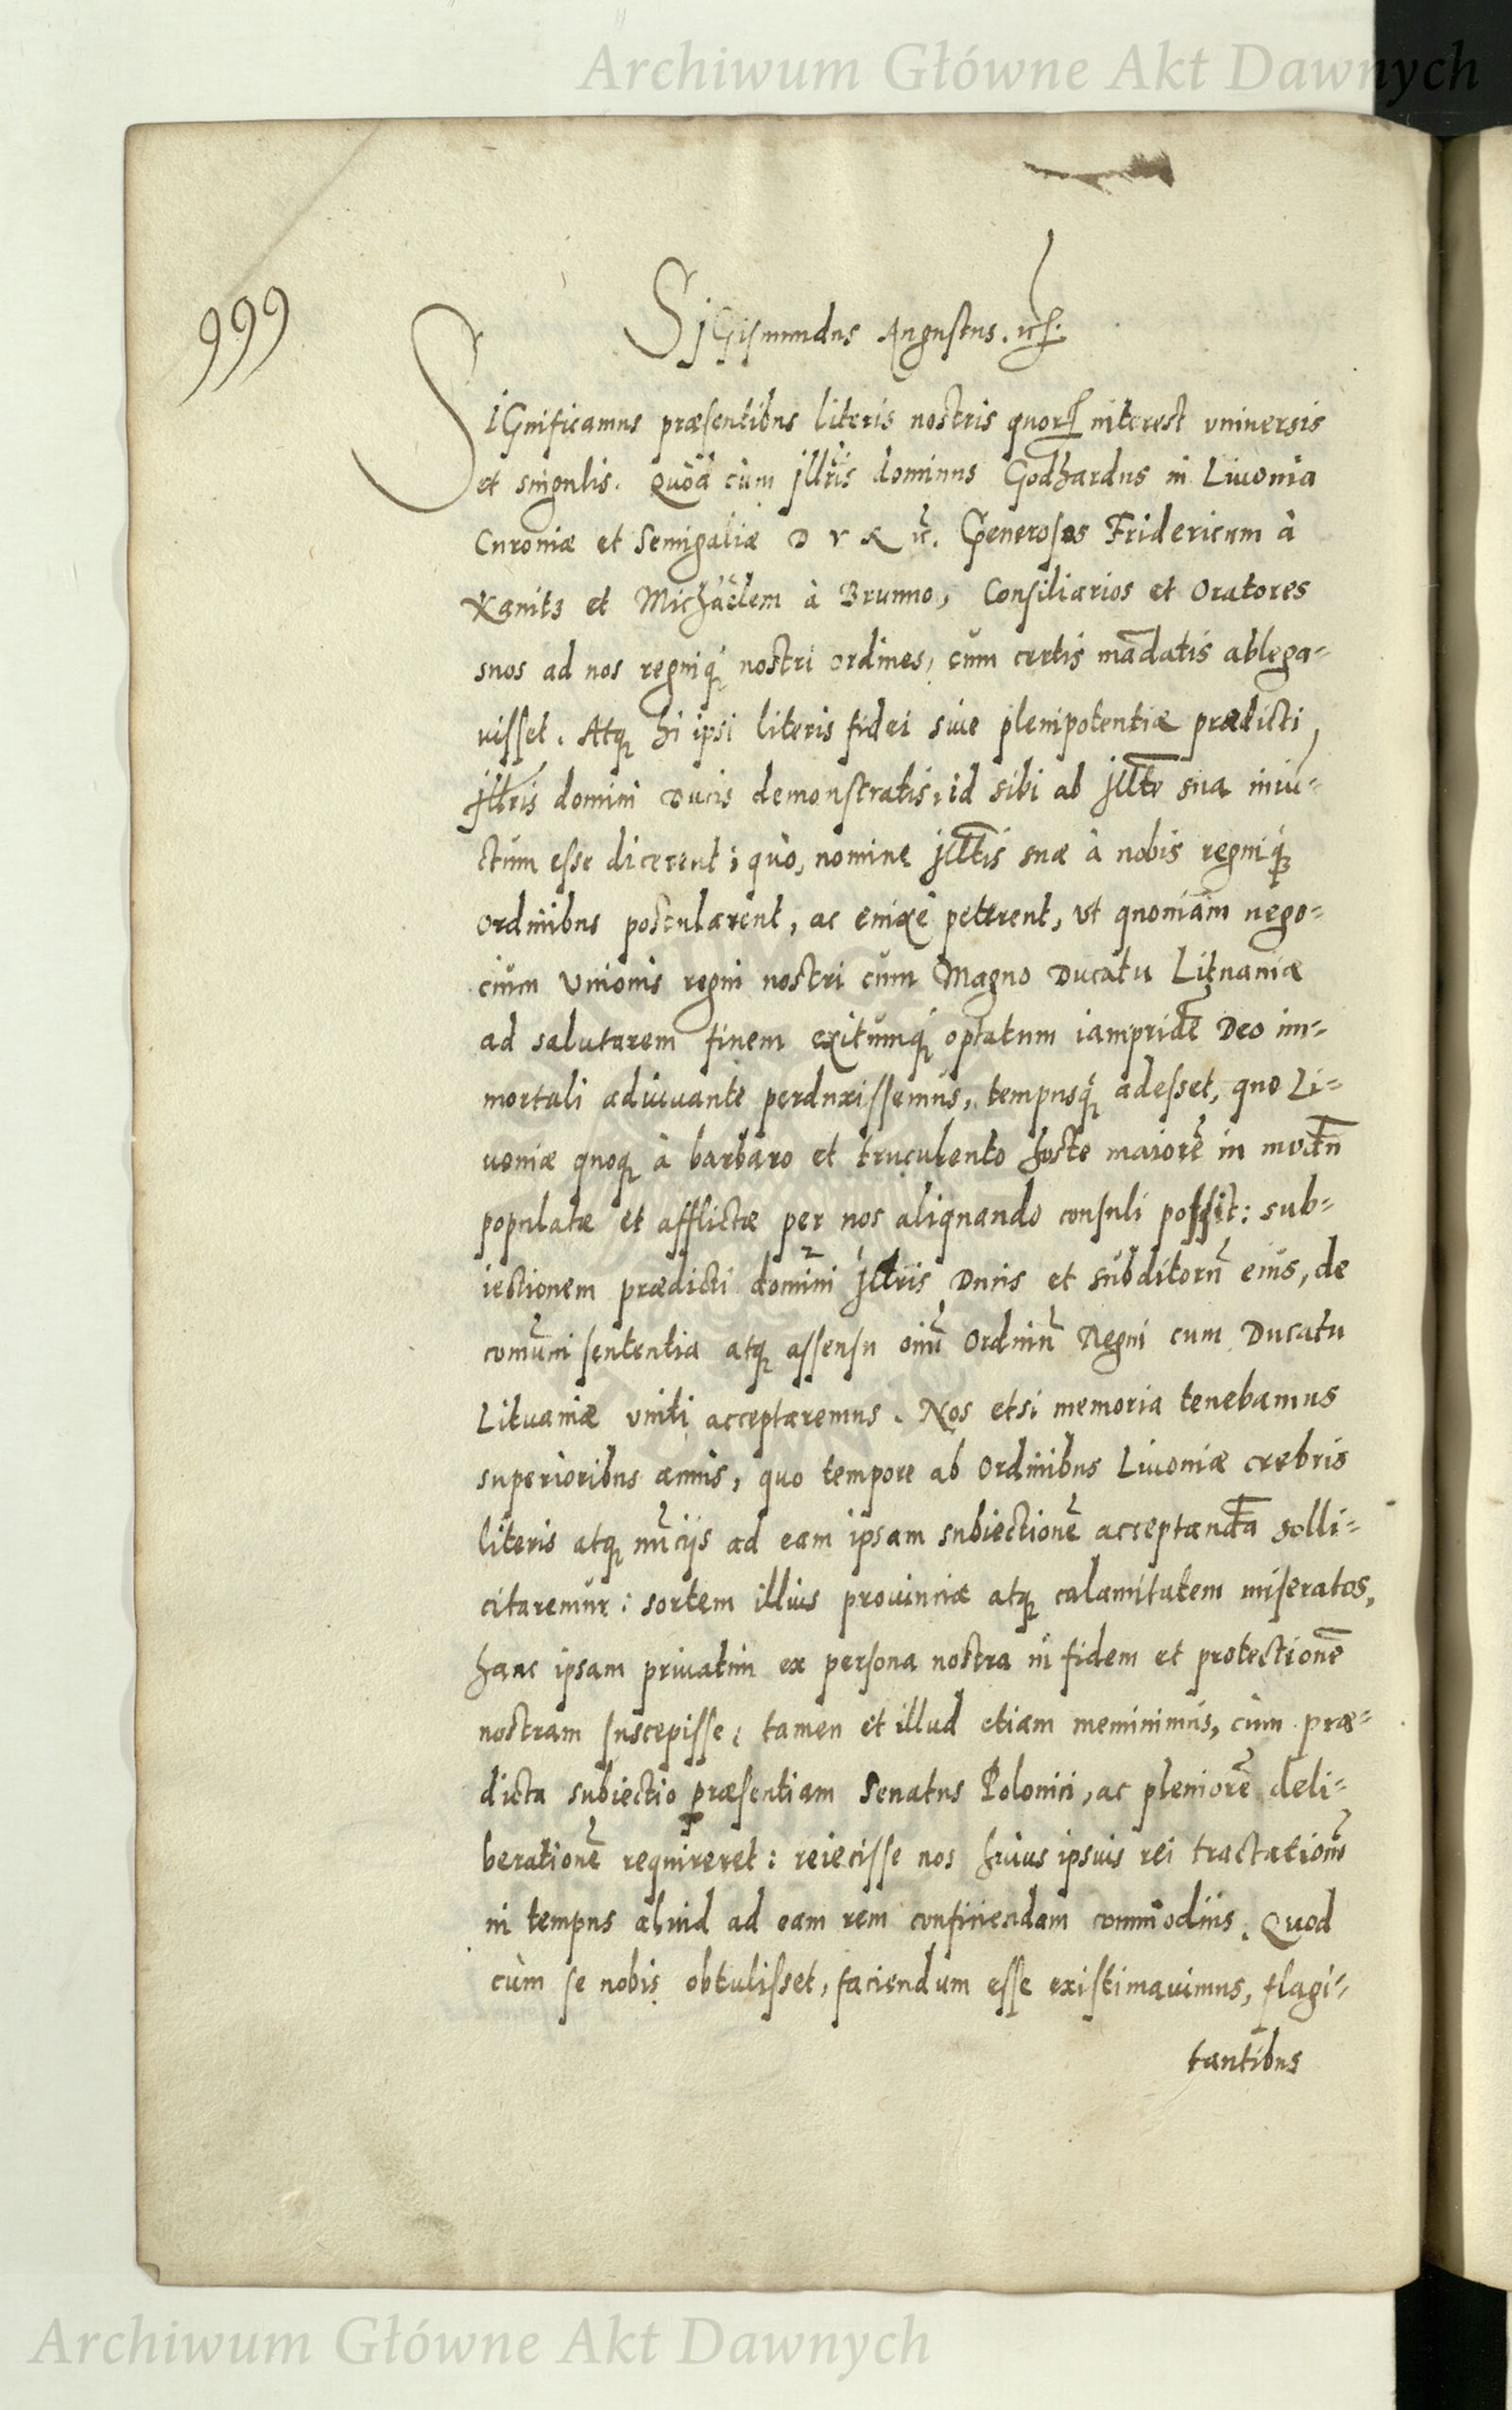 Archiwum Główne Akt Dawnych
999
Sigismundus Augustus. etc.
Significamus præsentibus literis nostris quorum interest vniuersis
et singulis. Quòd cùm jllris dominus Godhardus in Liuonia
Curoniæ et Semigaliæ D V X etc. Generosos Fridericum à
Kanitz et Michäelem à Brunno, Consiliarios et Oratores
suos ad nos regniq́ nostri ordines, cùm certis mãdatis ablega-
uisset. Atq hi ipsi literis fidei siue plenipotentiæ prædicti
jllris domini Ducis demonstratis, id sibi ab jllte sua iniũ-
ctum esse dicerent; quò, nomine jlltis suæ à nobis regniq́
ordinibus postularent, ac enixè peterent, vt quoniam nego-
cium Vnionis regni nostri cùm Magno Ducatu Lituaniæ
ad salutarem finem exitumq́ optatum iampridẽ Deo im-
mortali adiuuante perduxissemus, tempusq́ adesset, quo Li-
uoniæ quoq à barbaro et truculento hoste maiorẽ in modũ
populatæ et afflictæ per nos aliquando consuli possit: sub-
iectionem prædicti domini jllris Ducis et subditorũ eius, de
comũni sententia atq assensu oĩũ Ordinũ Regni cum Ducatu
Lituaniæ vniti acceptaremus. Nos etsi memoria tenebamus
superioribus annis, quo tempore ab Ordinibus Liuoniæ crebris
literis atq nũcijs ad eam ipsam subiectionẽ acceptandã solli-
citaremur: sortem illius prouinciæ atq calamitatem miseratos,
hanc ipsam priuatim ex persona nostra in fidem et protectionẽ
nostram suscepisse; tamen et illud etiam meminimus, cùm præ-
dicta subiectio præsentiam Senatus Polonici, ac pleniorẽ deli-
berationẽ requireret: reiecisse nos huius ipsius rei tractationẽ
in tempus aliud ad eam rem conficiendam commodius. Quod
cùm se nobis obtulisset, faciendum esse existimauimus, flagi-
tantibus
Archiwum Główne Akt Dawnych